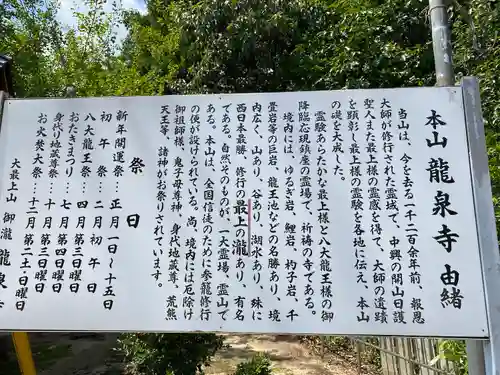 本山 龍泉寺 由緒
当山は、今を去る一千二百余年前、報恩
大師が修行された霊域で、中興の開山日護
聖人また最上様の霊感を得て、大師の遺蹟
を顕彰し最上様の霊験を各地に伝え、本山
の礎を大成した。
霊験あらたかな最上様と八大龍王様の御
降臨応現鎮座の霊場で、祈祷の寺である。
境内には、ゆるぎ岩、鯉岩、杓子岩、千
畳岩等の巨岩、龍王池などの名勝あり、境
内広く、山あり、谷あり、湖水あり、殊に
西日本最勝、修行の最上の瀧あり、有名
である。自然そのものが、一大霊場、霊山で
ある。本山は、全国信徒のために参籠修行
の便が設けられている。尚、境内には厄除け
御祖師様、鬼子母尊神、身代地蔵尊、荒熊
天王等、諸神がお祭りされています。
祭日
新年開運祭…正月一日〜十五日
初午祭…二月初午日
八大龍王祭…四月第三日曜日
おたきまつり…七月第四日曜日
身代り地蔵祭…十月第三日曜日
お火焚大祭…十二月第二日曜日
大最上山 御瀧 龍泉